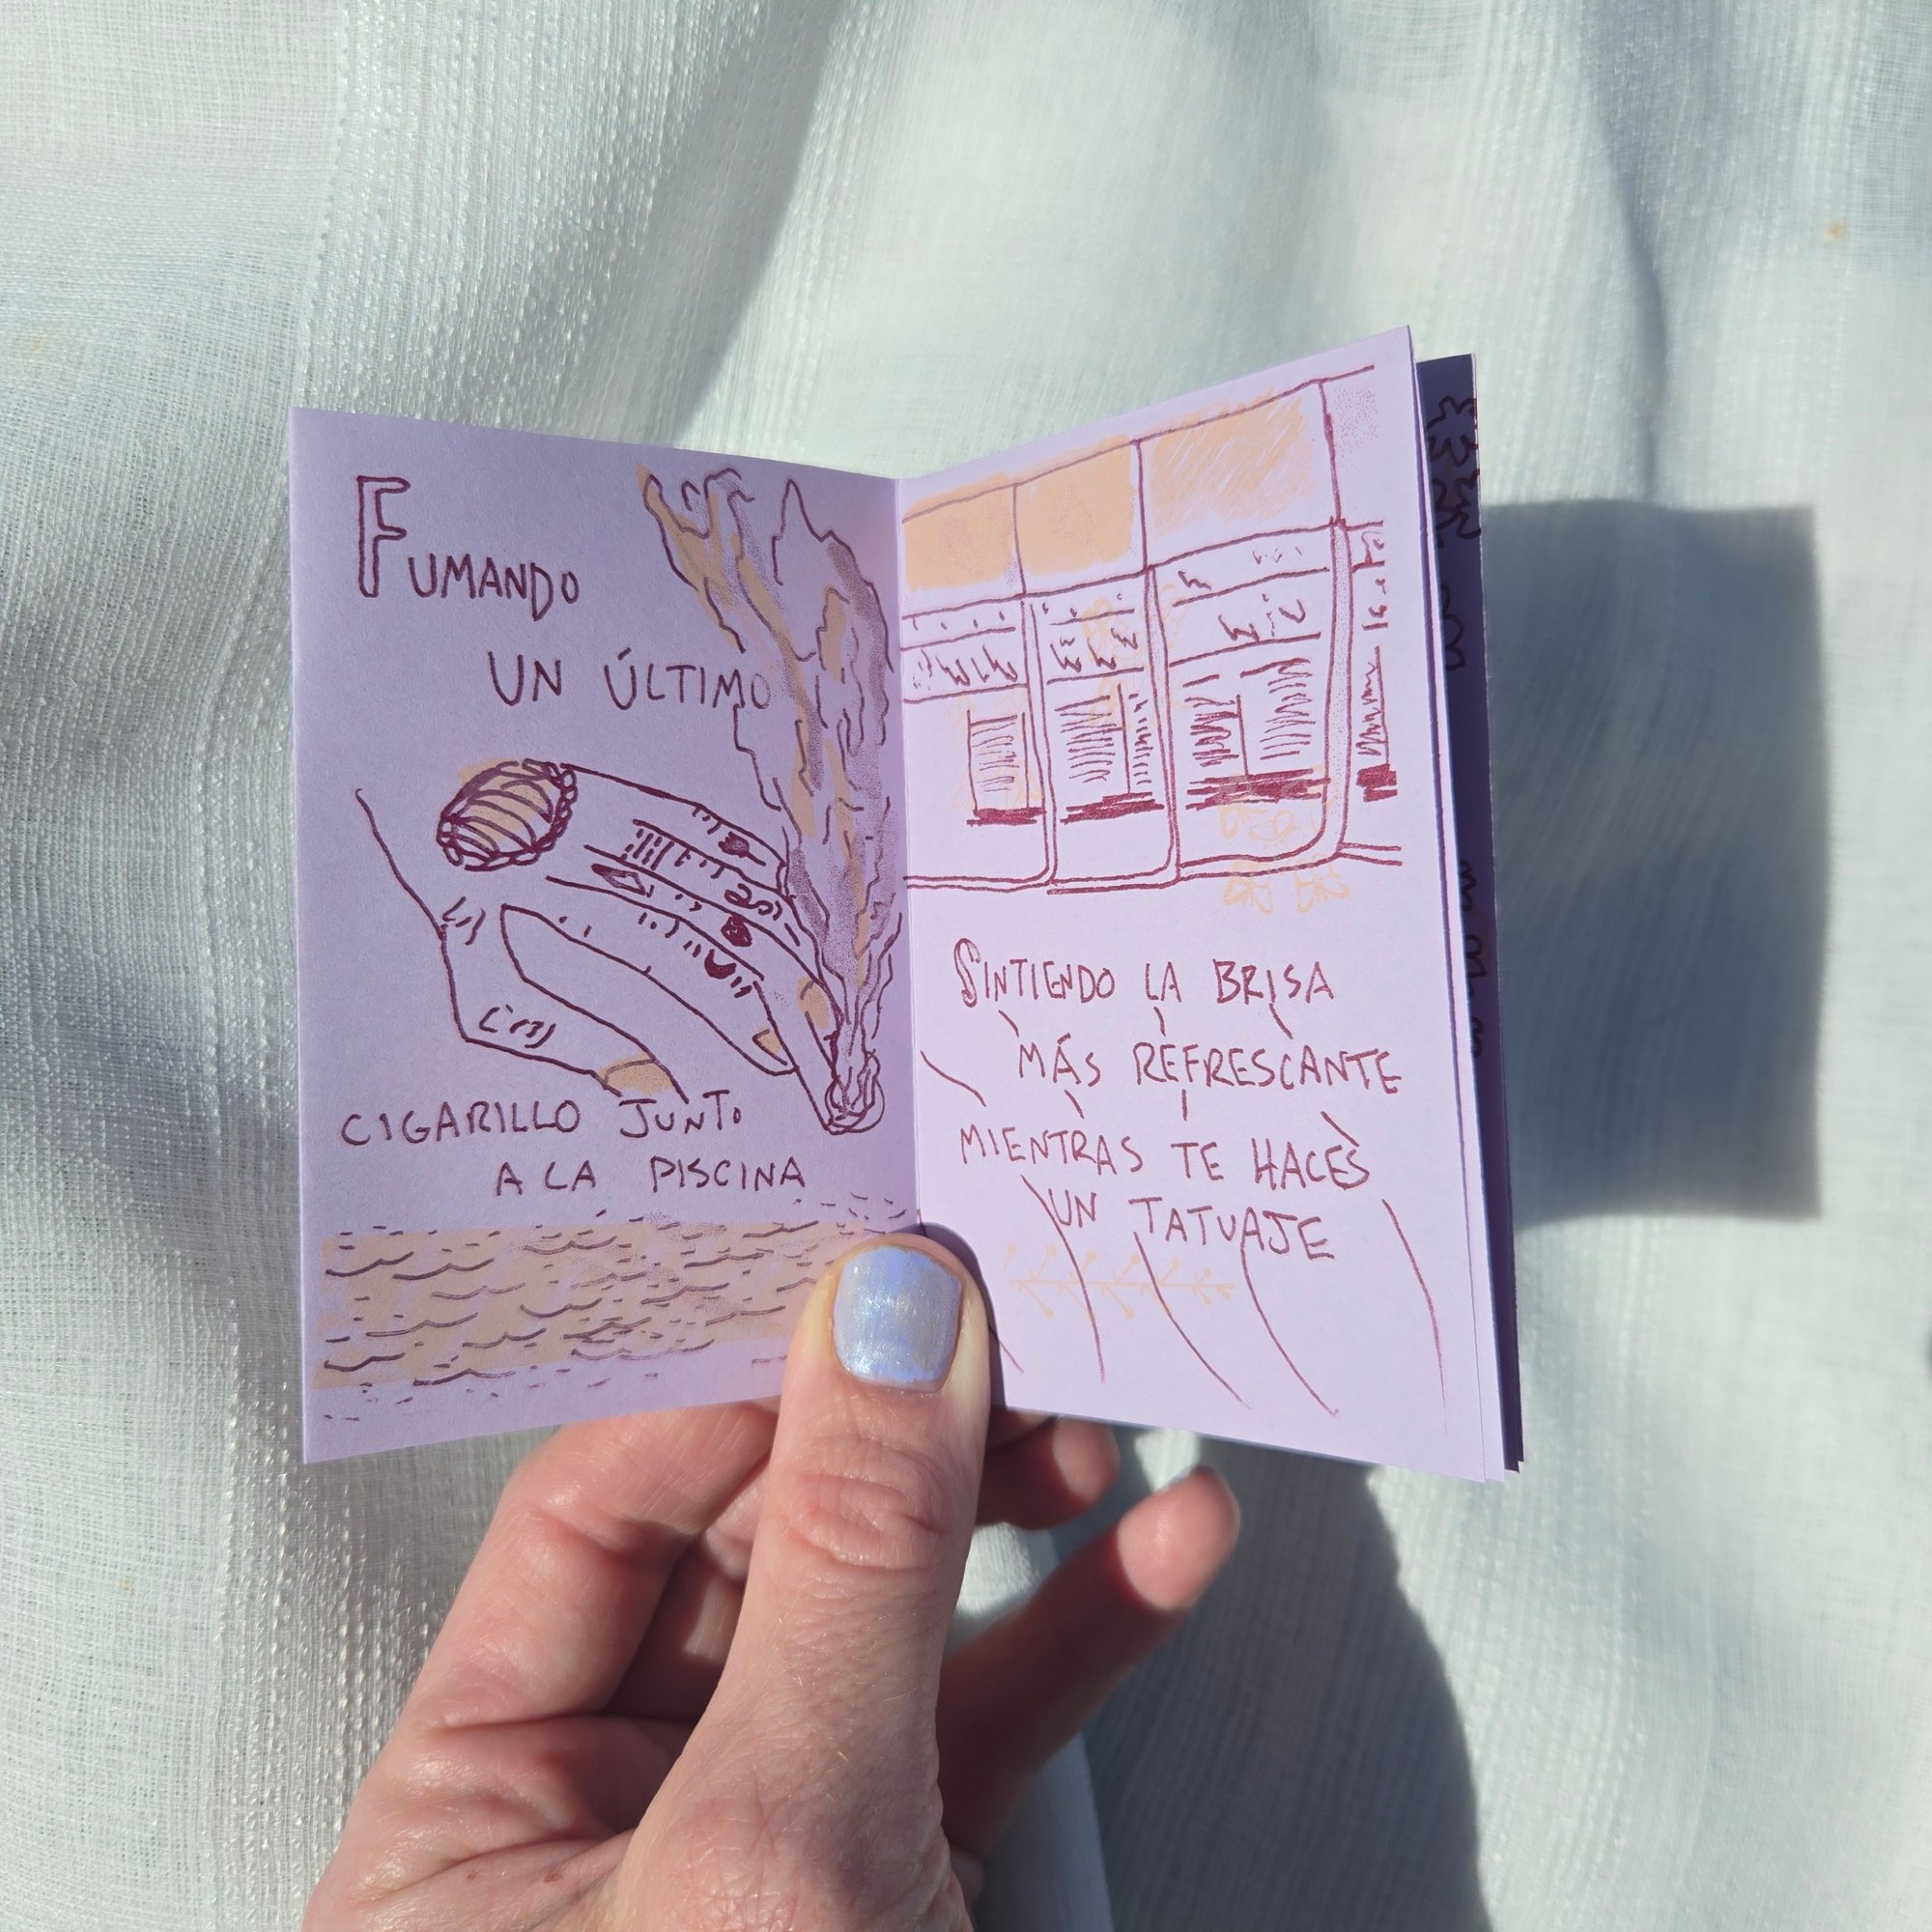 FUMANDO
UN ÚLTIMO
CIGARILLO JUNTO
A LA PISCINA
SINTIENDO LA BRISA
MÁS REFRESCANTE
MIENTRAS TE HACES
UN TATUAJE